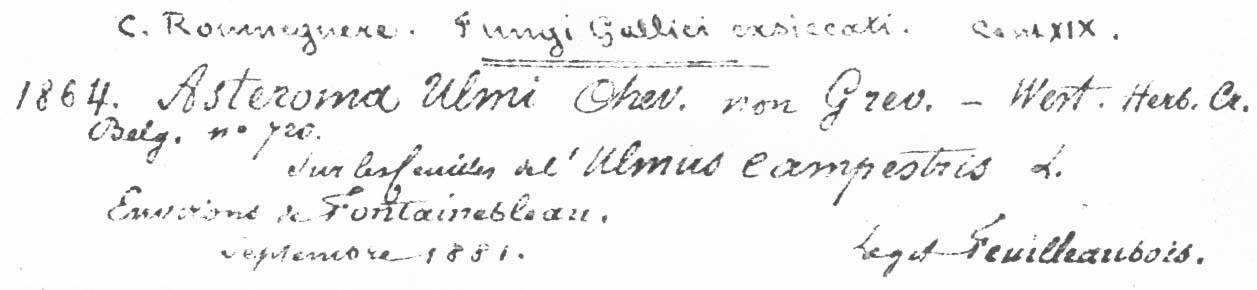 C. Roumeguere. Fungi Gallici exsiccati. Cent. XIX.
1864. Asteroma Ulmi Chev. non Grev. – West. Herb. Cr.
Belg. no 720.
Sur les feuilles de l'Ulmus campestris L.
Environs de Fontainebleau.
Septembre 1881. Legit Feuilleaubois.